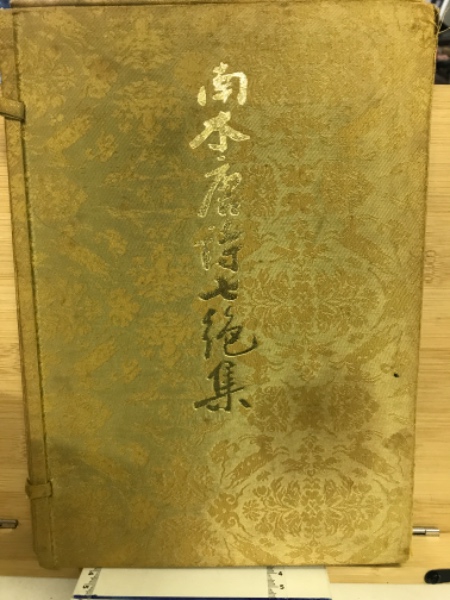 南本唐詩七絶集